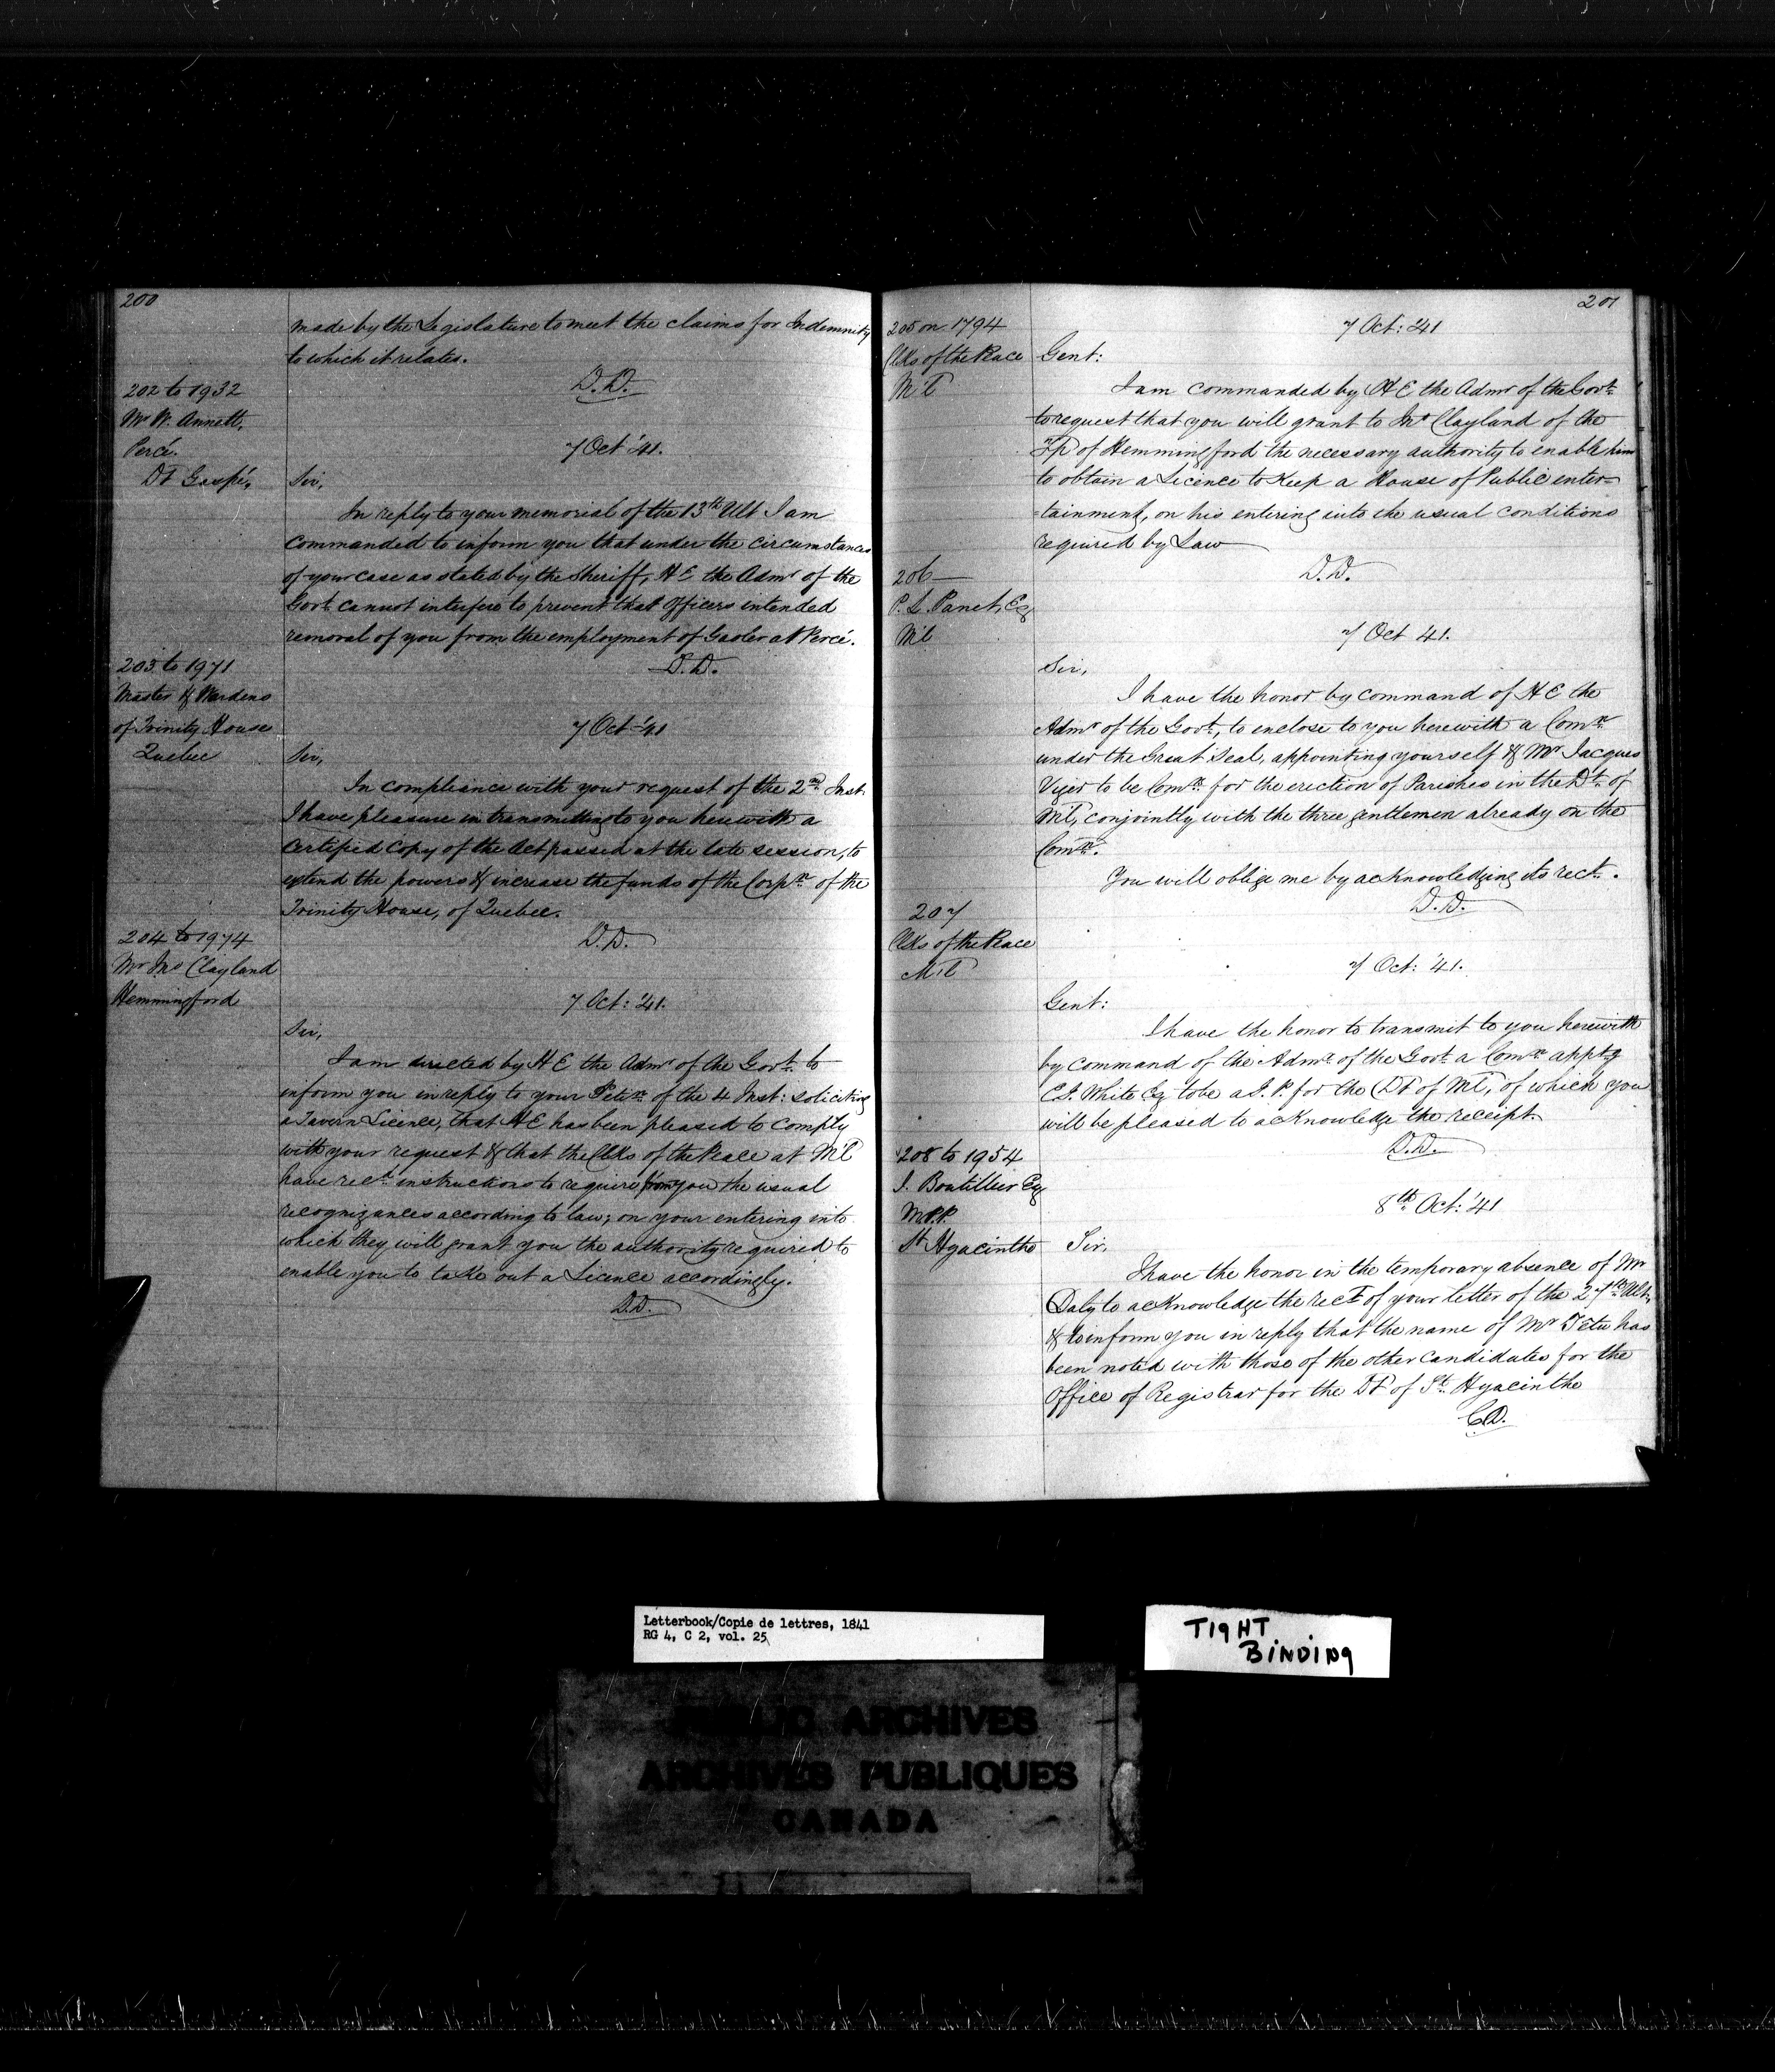 200
made by the Legislature to meet the claims for Indemnity
to which it relates.
D.D.
202 to 1932
Mr W. Annett,
Percé.
Dt Gaspé,
7 Oct '41.
Sir,
In reply to your memorial of the 13th Ult I am
commanded to inform you that under the circumstances
of your case as stated by the Sheriff, H E the Admr of the
Govt cannot interfere to prevent that Officers intended
removal of you from the employment of Gaoler at Percé.
D.D.
203 to 1971
Master & Wardens
of Trinity House
Quebec
7 Oct '41
Sir,
In compliance with your request of the 2nd Inst.
I have pleasure in transmitting to you herewith a
Certified Copy of the Act passed at the late session, to
extend the powers & increase the funds of the Corpn of the
Trinity House, of Quebec.
D.D.
204 to 1974
Mr Jno Clayland
Hemmingford
7 Oct: '41.
Sir,
I am directed by H E the Admr of the Govt to
inform you in reply to your Petn of the 4 Inst: soliciting
a Tavern Licence, that H E has been pleased to comply
with your request & that the Clks of the Peace at M'l
have recd instructions to require from you the usual
recognizances according to law; on your entering into
which they will grant you the authority required to
enable you to take out a Licence accordingly.
D.D.
201
205 on 1794
Clks of the Peace
M'l
7 Oct: '41
Gent:
I am commanded by H E the Admr of the Govt
to request that you will grant to Jno Clayland of the
Tp of Hemmingford the necessary authority to enable him
to obtain a Licence to Keep a House of Public enter-
=tainment, on his entering into the usual conditions
required by Law
D.D.
206
P. L. Panet, Esq
M'l
7 Oct 41.
Sir,
I have the honor by command of H E the
Admr of the Govt, to enclose to you herewith a Comn
under the Great Seal, appointing yourself & Mr Jacques
Viger to be Comrs for the erection of Parishes in the Dt of
M'l, conjointly with the three gentlemen already on the
Comn.
You will oblige me by acknowledging its rect.
D.D.
207
Clks of the Peace
M'l
7 Oct: '41.
Gent:
I have the honor to transmit to you herewith
by command of the Admr of the Govt a Comn apptg
C.J. White Esq to be a J.P. for the Dt of M'l, of which you
will be pleased to acknowledge the receipt.
D.D.
208 to 1954
J. Boutillier Esq
M.P.P.
St Hyacinthe
8th Oct: '41
Sir,
I have the honor in the temporary absence of Mr
Daly to acknowledge the rect of your letter of the 27th Ult,
& to inform you in reply that the name of Mr Tetu has
been noted with those of the other candidates for the
Office of Registrar for the Dt of St Hyacinthe
C.D.
Letterbook/Copie de lettres, 1841
RG 4, C 2, vol. 25
TIGHT
BINDING
PUBLIC ARCHIVES
ARCHIVES PUBLIQUES
CANADA